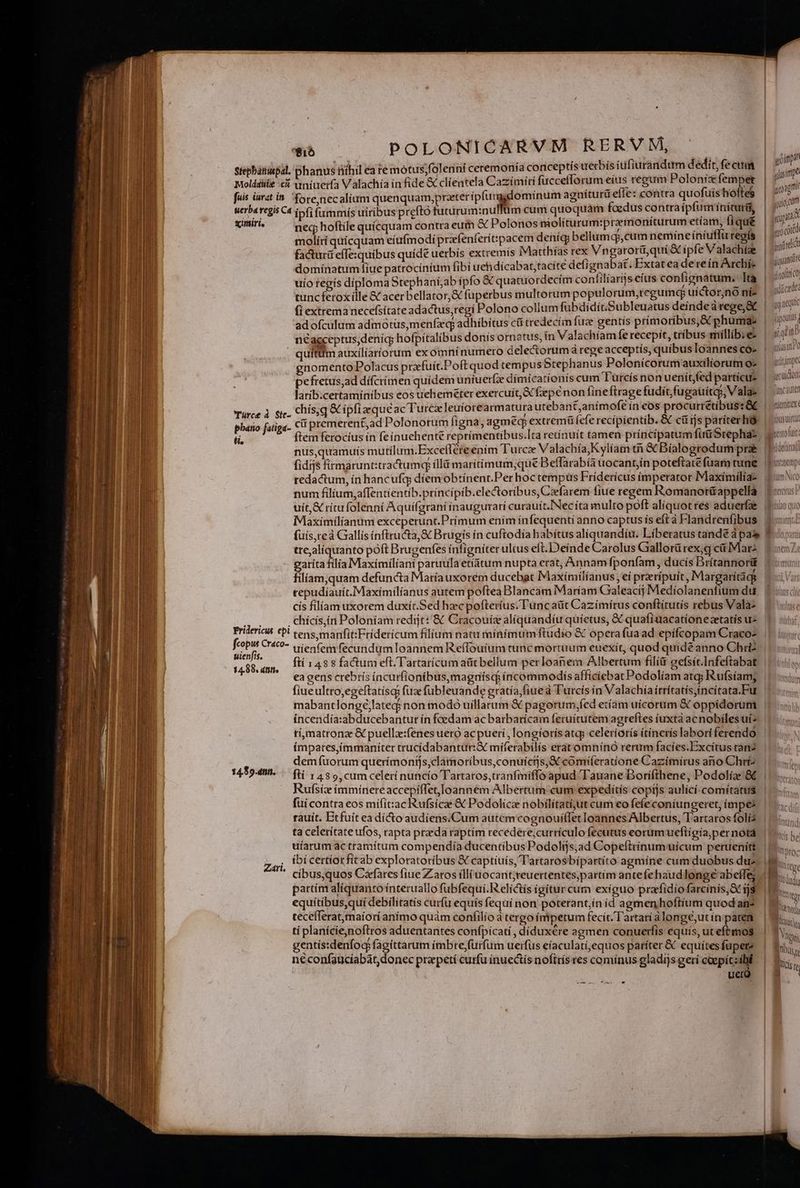 810 POLONICARVM RERVM,
Stephanus pal. phanus nihil ea re motus, solenni ceremonia conceptis uerbis iusiurandum dedit, se cum
Moldauiæ cũ uniuersa Valachia in fide & clientela Cazimiri successorum eius regum Poloniæ semper
suis iurat in fore, nec alium quenquam, præter ipsum dominum agniturũ esse: contra quosuis hostes
uerba regis Ca ipsi summis uiribus presto futurum: nullum cum quoquam fœdus contra ipsum initurũ,
ximiri. necꝗ hostile quicquam contra eum & Polonos moliturum: præmoniturum etiam, si quẽ
moliri quicquam eiusmodi præsenserit: pacem deniqꝫ bellumqꝫ, cum nemine iniussu regis
facturũ esse: quibus quidẽ uerbis extremis Matthias rex Vngarorũ, qui & ipse Valachiæ
dominatum siue patrocinium sibi uendicabat, tacite designabat. Extat ea de re in Archi-
uio regis diploma Stephani, ab ipso & quatuordecim consiliarijs eius consignatum. Ita
tunc ferox ille & acer bellator, & superbus multorum populorum, regumqꝫ uictor, nõ ni-
si extrema necessitate adactus, regi Polono collum subdidit. Subleuatus deinde à rege, &
ad osculum admotus, mensæqꝫ adhibitus cũ tredecim suæ gentis primoribus, & phuma-
nè acceptus, deniqꝫ hospitalibus donis ornatus, in Valachiam se recepit, tribus millib. e-
quitum auxiliariorum ex omni numero delectorum à rege acceptis, quibus Ioannes co-
gnomento Polacus præfuit. Post quod tempus Stephanus Polonicorum auxiliorum o-
pe fretus, ad discrimen quidem uniuersæ dimicationis cum Turcis non uenit, sed particu-
larib. certaminibus eos uehemẽter exercuit, & sæpe non sine strage fudit, fugauitqꝫ, Vala-
Turcæ à Ste- chis, q & ipsi æque ac Turcæ leuiore armatura utebant, animose in eos procurrẽtibus: &
phano fatiga- cũ premerent, ad Polonorum signa, agmẽqꝫ extremũ sese recipientib. & cũ ijs pariter ho-
ti. stem ferocius in se inuehentẽ reprimentibus. Ita retinuit tamen principatum suũ Stepha-
nus, quamuis mutilum. Excessere enim Turcæ Valachia, Kyliam tñ & Bialogrodum præ-
sidijs firmarunt: tractumqꝫ illũ maritimum, quẽ Bessarabiã uocant, in potestatẽ suam tunc
redactum, in hanc usqꝫ diem obtinent. Per hoc tempus Fridericus imperator Maximilia-
num filium, assentientib. principib. electoribus, Cæsarem siue regem Romanorũ appella-
uit, & ritu solenni Aquisgrani inaugurari curauit. Nec ita multo post aliquot res aduersæ
Maximilianum exceperunt. Primum enim insequenti anno captus is est à Flandrensibus
suis, re à Gallis instructa, & Brugis in custodia habitus aliquandiu. Liberatus tandẽ à pa-
tre, aliquanto post Brugenses insigniter ultus est. Deinde Carolus Gallorũ rex, q cũ Mar-
garita filia Maximiliani paruula etiãtum nupta erat, Annam sponsam, ducis Britannorũ
filiam, quam defuncta Maria uxorem ducebat Maximilianus, ei præripuit, Margaritãqꝫ
repudiauit. Maximilianus autem postea Blancam Mariam Galeacij Mediolanensium du-
cis filiam uxorem duxit. Sed hæc posterius. Tunc aũt Cazimirus constitutis rebus Vala-
chicis, in Poloniam redijt: & Cracouiæ aliquandiu quietus, & quasi uacatione ætatis u-
Fridericus epi tens, mansit: Fridericum filium natu minimum studio & opera sua ad episcopam Craco-
scopus Craco- uiensem secundum Ioannem Resouium tunc mortuum euexit, quod quidẽ anno Chri-
uiensis. sti 1488 factum est. Tartaricum aũt bellum per Ioannem Albertum filiũ gessit. Infestabat
1488. anno. ea gens crebris incursionibus, magnisqꝫ incommodis afficiebat Podoliam atqꝫ Russiam,
siue ultro, egestatisqꝫ suæ subleuandæ gratia, siue à Turcis in Valachia irritatis, incitata. Fu-
mabant longe, lateqꝫ non modo uillarum & pagorum, sed etiam uicorum & oppidorum
incendia: abducebantur in fœdam ac barbaricam seruitutem agrestes iuxta ac nobiles ui-
ri, matronæ & puellæ: senes uero ac pueri, longioris atqꝫ celerioris itineris labori ferendo
impares, immaniter trucidabantur: & miserabilis erat omnino rerum facies. Excitus tan-
dem suorum querimonijs, clamoribus, conuicijs, & cõmiseratione Cazimirus año Chri-
1489. ann. sti 1489, cum celeri nuncio Tartaros, transmisso apud Tauane Boristhene, Podoliæ &
Russiæ imminere accepisset, Ioannem Albertum cum expeditis copijs aulici comitatus
sui contra eos misit: ac Russicæ & Podolicæ nobilitati, ut cum eo sese coniungeret, impe-
rauit. Et fuit ea dicto audiens. Cum autem cognouisset Ioannes Albertus, Tartaros soli-
ta celeritate usos, rapta præda raptim recedere, curriculo secutus eorum uestigia, per nota
uiarum ac tramitum compendia ducentibus Podolijs, ad Copestrinum uicum peruenit:
ibi certior fit ab exploratoribus & captiuis, Tartaros bipartito agmine cum duobus du-
Zari. cibus, quos Cæsares siue Zaros illi uocant, reuertentes, partim ante se haud longe abesse,
partim aliquanto interuallo subsequi. Relictis igitur cum exiguo præsidio sarcinis, & ijs
equitibus, qui debilitatis cursu equis sequi non poterant, in id agmen hostium quod an-
tecesserat, maiori animo quàm consilio à tergo impetum fecit. Tartari à longe, ut in paten-
ti planicie, nostros aduentantes conspicati, diduxere agmen conuersis equis, ut est mos
gentis: densoqꝫ sagittarum imbre, sursum uersus eiaculati, equos pariter & equites super-
nè confauciabãt, donec præpeti cursu inuectis nostris res cominus gladijs geri cœpit: ibi
uero